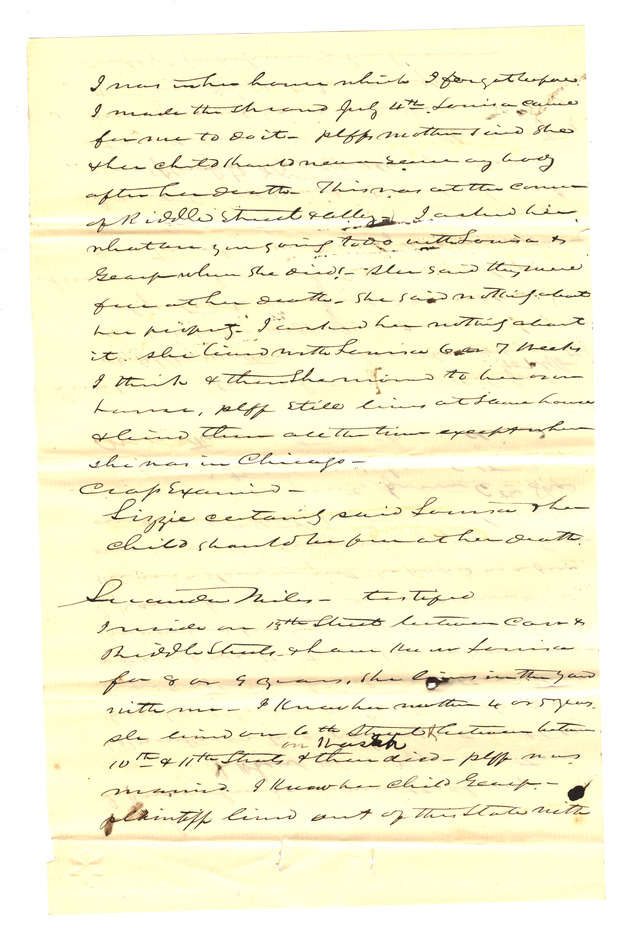 I was in her house which I forgot before
I made the shroud July 4th. Louisa came
for me to do it - plffs mother said she
& her child should never serve any body
after her death - This was at the corner
of Biddle Street & alley - I asked her
what are you going to do with Louisa &
George when she died - she said they were
free at her death - she said nothing about
her property - I asked her nothing about
it. she lived with Louisa 6 or 7 weeks
I think & then she moved to her own
house, plff still lives at same house
& lived there all the time except when
she was in Chicago -
Cross Examined -
Lizzie certainly said Louisa & her
child should be free at her death.
Miles - testified
I reside on 15th Street between Carr &
Biddle Streets & have known Louisa
for 8 or 9 years. She lives in the yard
with me - I knew her mother 4 or 5 years.
she lived on 6th Street between between
on Wash
10th & 11th Streets & then died - plff was
married. I know her child George -
plaintiff lived out of this State with